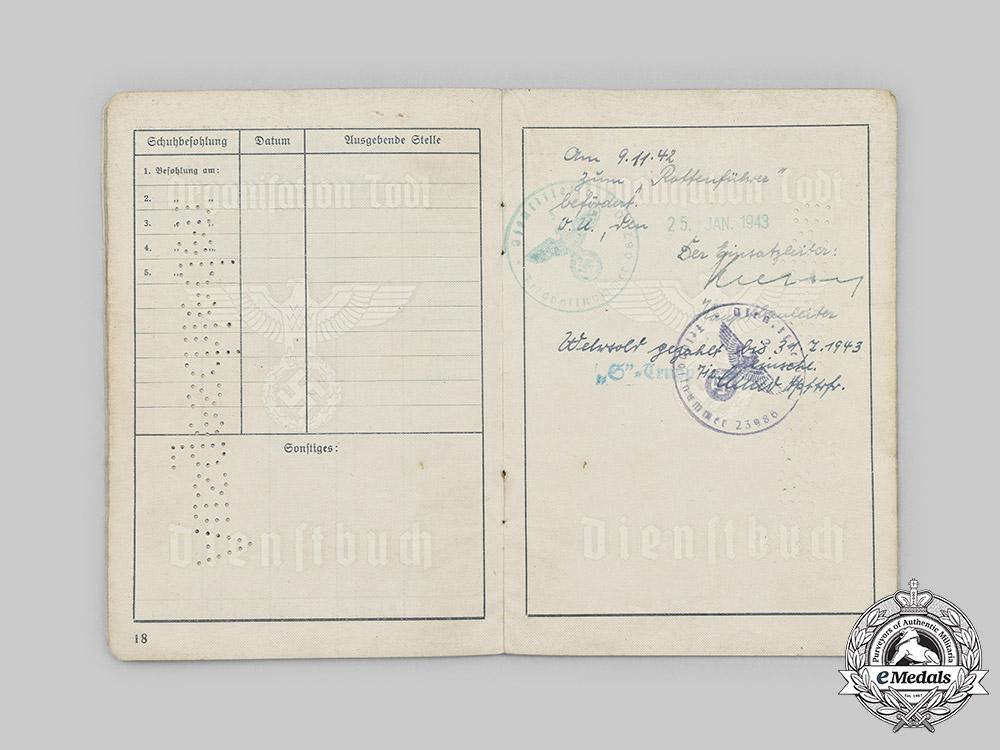 Schuhbesohlung Datum Ausgebende Stelle
1. Besohlung am:
2. „ „
3. „ „
4. „ „
5. „ „
Organisation Todt
Sonstiges:
Dienstbuch
18
Organisation Todt
Am 9.11.42
zum "Rottenführer"
befördert.
O.U., den 25. JAN. 1943
Der Einsatzleiter:
Wehrsold gezahlt bis 31.7.1943
„S"
Feldpostnummer 23986
Dienstbuch
Purveyors of Authentic Militaria
eMedals